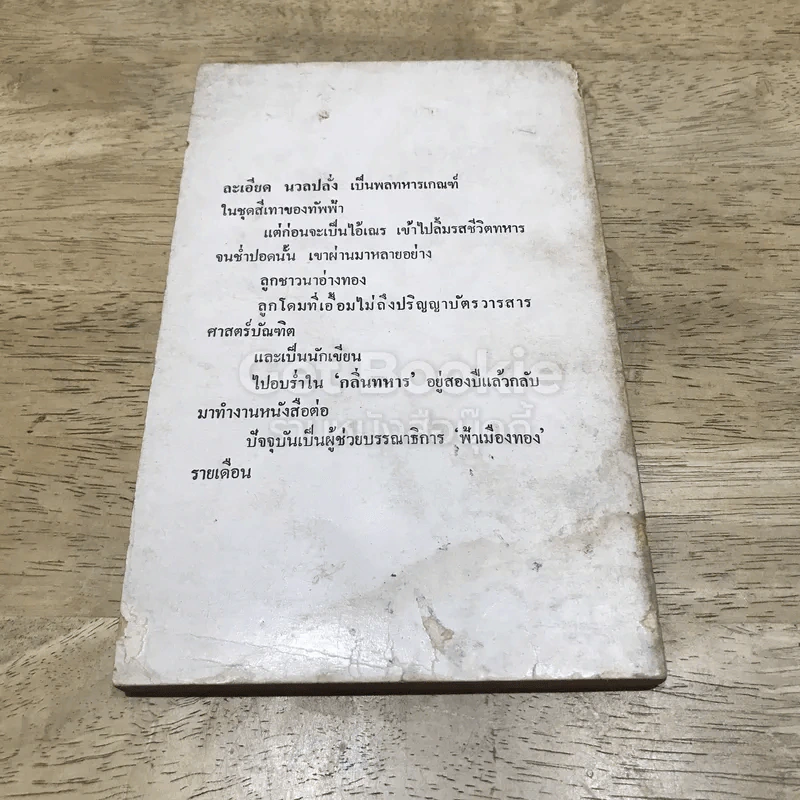 ละเอียด นวลปลั่ง เป็นพลทหารเกณฑ์
ในชุดสีเทาของทัพฟ้า
แต่ก่อนจะเป็นไอ้เณร เข้าไปลิ้มรสชีวิตทหาร
จนช่ำปอดนั้น เขาผ่านมาหลายอย่าง
ลูกชาวนาอ่างทอง
ลูกโดมที่เอื้อมไม่ถึงปริญญาบัตรวารสาร
ศาสตร์บัณฑิต
และเป็นนักเขียน
Got Bookie
ไปอบร่ำใน ‘กลิ่นทหาร’ อยู่สองปีแล้วกลับ
มาทำงานหนังสือต่อ
ปัจจุบันเป็นผู้ช่วยบรรณาธิการ ‘ฟ้าเมืองทอง’
รายเดือน